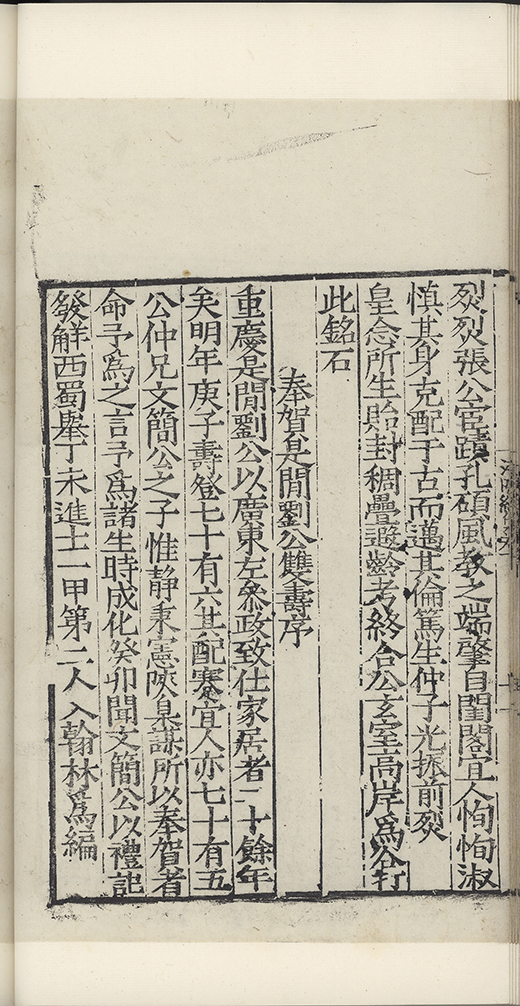 烈烈張公宦蹟孔碩風教之端肇自閨閣宜人恂恂淑
慎其身克配于古而邁其倫篤生仲子光振前烈
皇念所生貽封稠疊遐齡考終合公玄室高岸為谷
此銘石
奉賀是閒劉公雙壽序
重慶是閒劉公以廣東左參政致仕家居者二十餘年
矣明年庚子壽登七十有六其配蹇宜人亦七十有五
公仲兄文簡公之子惟静秉憲陝臬謀所以奉賀者
命予為之言予為諸生時成化癸卯聞文簡公以禮記
發解西蜀舉丁未進士一甲第二人入翰林為編